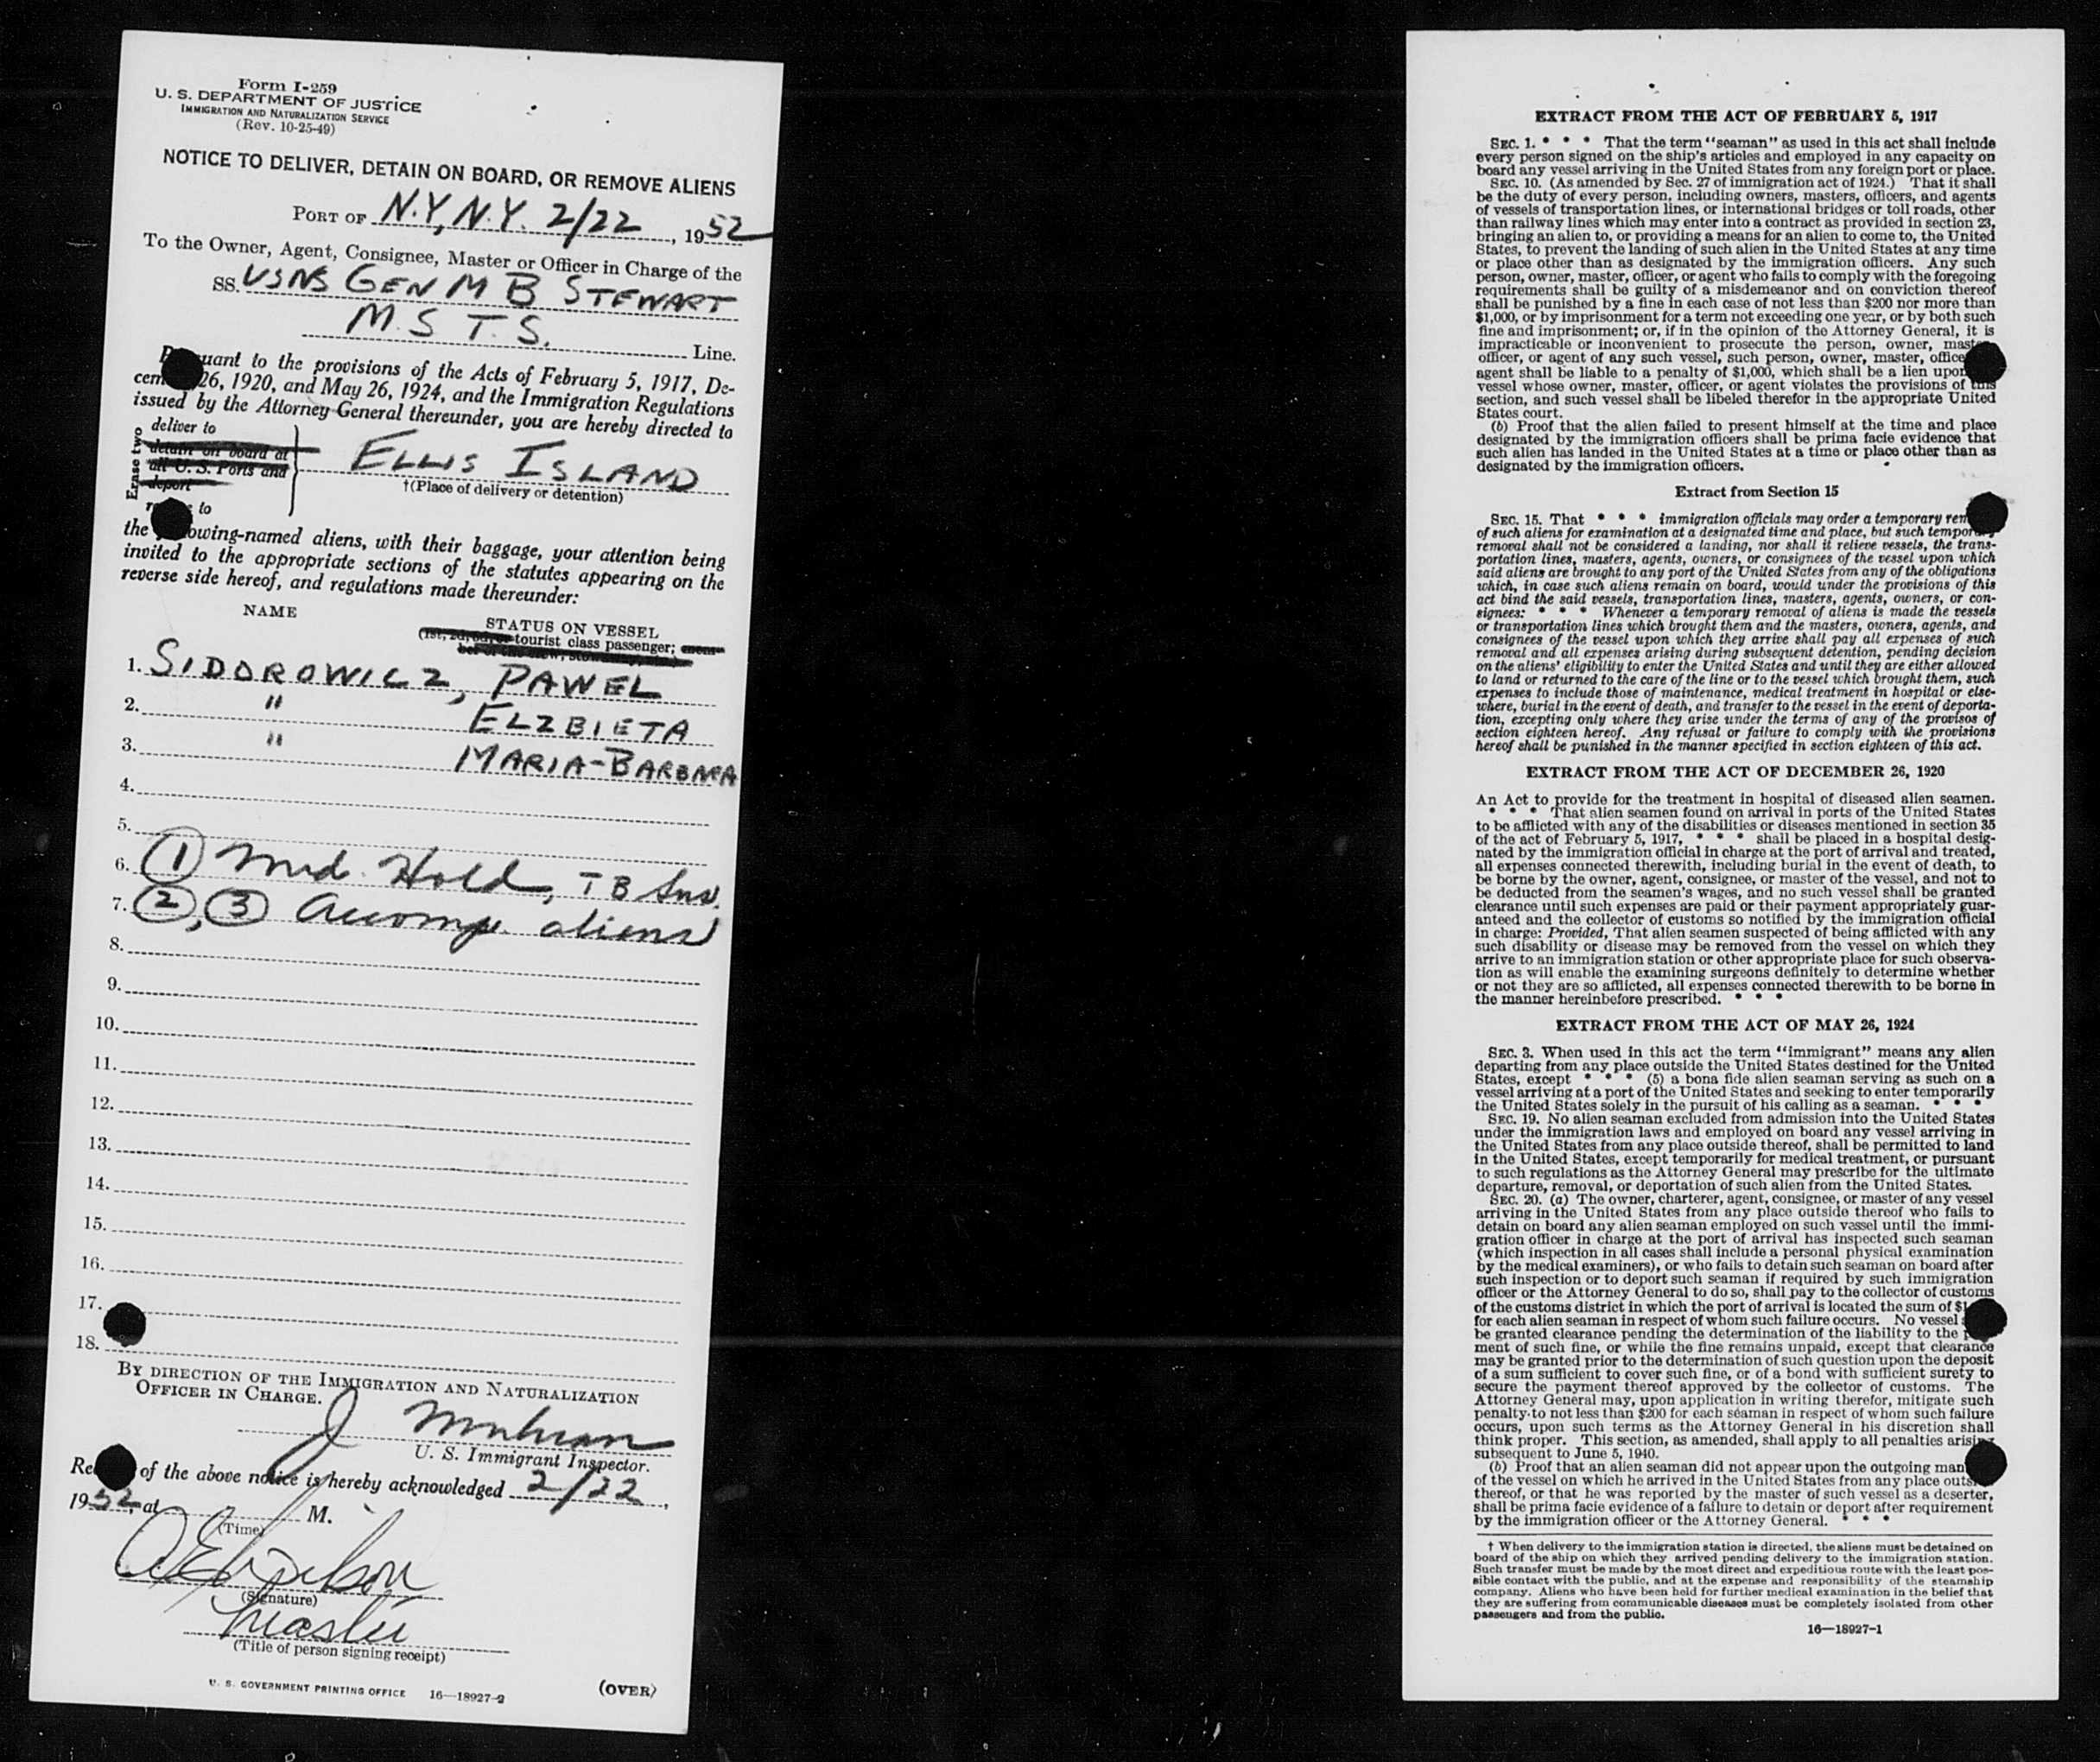 Form I-259
U. S. DEPARTMENT OF JUSTICE
IMMIGRATION AND NATURALIZATION SERVICE
(Rev. 10-25-49)
NOTICE TO DELIVER, DETAIN ON BOARD, OR REMOVE ALIENS
PORT OF N.Y, N.Y. 2/22, 1952
To the Owner, Agent, Consignee, Master or Officer in Charge of the
SS. USNS GEN M B STEWART
M.S T.S. Line.
uant to the provisions of the Acts of February 5, 1917, De-
cem 26, 1920, and May 26, 1924, and the Immigration Regulations
issued by the Attorney General thereunder, you are hereby directed to
Erase two
deliver to
detain on board at
all U. S. Ports and
deport
to
ELLIS ISLAND
†(Place of delivery or detention)
the owing-named aliens, with their baggage, your attention being
invited to the appropriate sections of the statutes appearing on the
reverse side hereof, and regulations made thereunder:
NAME
STATUS ON VESSEL
tourist class passenger;
1. SIDOROWICZ, PAWEL
2. " ELZBIETA
3. " MARIA-BARBARA
4.
5.
6. (1) Med. Hold, TB Inv.
7. (2), (3) Accomp. aliens
8.
9.
10.
11.
12.
13.
14.
15.
16.
17.
18.
BY DIRECTION OF THE IMMIGRATION AND NATURALIZATION
OFFICER IN CHARGE.
J
U. S. Immigrant Inspector.
Re of the above notice is hereby acknowledged 2/22,
1952, at M.
(Time)
(Signature)
Master
(Title of person signing receipt)
U. S. GOVERNMENT PRINTING OFFICE 16—18927-2
(OVER)
EXTRACT FROM THE ACT OF FEBRUARY 5, 1917
SEC. 1. * * * That the term "seaman" as used in this act shall include
every person signed on the ship's articles and employed in any capacity on
board any vessel arriving in the United States from any foreign port or place.
SEC. 10. (As amended by Sec. 27 of immigration act of 1924.) That it shall
be the duty of every person, including owners, masters, officers, and agents
of vessels of transportation lines, or international bridges or toll roads, other
than railway lines which may enter into a contract as provided in section 23,
bringing an alien to, or providing a means for an alien to come to, the United
States, to prevent the landing of such alien in the United States at any time
or place other than as designated by the immigration officers. Any such
person, owner, master, officer, or agent who fails to comply with the foregoing
requirements shall be guilty of a misdemeanor and on conviction thereof
shall be punished by a fine in each case of not less than $200 nor more than
$1,000, or by imprisonment for a term not exceeding one year, or by both such
fine and imprisonment; or, if in the opinion of the Attorney General, it is
impracticable or inconvenient to prosecute the person, owner, mast
officer, or agent of any such vessel, such person, owner, master, office
agent shall be liable to a penalty of $1,000, which shall be a lien upon
vessel whose owner, master, officer, or agent violates the provisions of this
section, and such vessel shall be libeled therefor in the appropriate United
States court.
(b) Proof that the alien failed to present himself at the time and place
designated by the immigration officers shall be prima facie evidence that
such alien has landed in the United States at a time or place other than as
designated by the immigration officers.
Extract from Section 15
SEC. 15. That * * * immigration officials may order a temporary rem
of such aliens for examination at a designated time and place, but such temporary
removal shall not be considered a landing, nor shall it relieve vessels, the trans-
portation lines, masters, agents, owners, or consignees of the vessel upon which
said aliens are brought to any port of the United States from any of the obligations
which, in case such aliens remain on board, would under the provisions of this
act bind the said vessels, transportation lines, masters, agents, owners, or con-
signees: * * * Whenever a temporary removal of aliens is made the vessels
or transportation lines which brought them and the masters, owners, agents, and
consignees of the vessel upon which they arrive shall pay all expenses of such
removal and all expenses arising during subsequent detention, pending decision
on the aliens' eligibility to enter the United States and until they are either allowed
to land or returned to the care of the line or to the vessel which brought them, such
expenses to include those of maintenance, medical treatment in hospital or else-
where, burial in the event of death, and transfer to the vessel in the event of deporta-
tion, excepting only where they arise under the terms of any of the provisos of
section eighteen hereof. Any refusal or failure to comply with the provisions
hereof shall be punished in the manner specified in section eighteen of this act.
EXTRACT FROM THE ACT OF DECEMBER 26, 1920
An Act to provide for the treatment in hospital of diseased alien seamen.
* * * That alien seamen found on arrival in ports of the United States
to be afflicted with any of the disabilities or diseases mentioned in section 35
of the act of February 5, 1917, * * * shall be placed in a hospital desig-
nated by the immigration official in charge at the port of arrival and treated,
all expenses connected therewith, including burial in the event of death, to
be borne by the owner, agent, consignee, or master of the vessel, and not to
be deducted from the seamen's wages, and no such vessel shall be granted
clearance until such expenses are paid or their payment appropriately guar-
anteed and the collector of customs so notified by the immigration official
in charge: Provided, That alien seamen suspected of being afflicted with any
such disability or disease may be removed from the vessel on which they
arrive to an immigration station or other appropriate place for such observa-
tion as will enable the examining surgeons definitely to determine whether
or not they are so afflicted, all expenses connected therewith to be borne in
the manner hereinbefore prescribed. * * *
EXTRACT FROM THE ACT OF MAY 26, 1924
SEC. 3. When used in this act the term "immigrant" means any alien
departing from any place outside the United States destined for the United
States, except * * * (5) a bona fide alien seaman serving as such on a
vessel arriving at a port of the United States and seeking to enter temporarily
the United States solely in the pursuit of his calling as a seaman. * * *
SEC. 19. No alien seaman excluded from admission into the United States
under the immigration laws and employed on board any vessel arriving in
the United States from any place outside thereof, shall be permitted to land
in the United States, except temporarily for medical treatment, or pursuant
to such regulations as the Attorney General may prescribe for the ultimate
departure, removal, or deportation of such alien from the United States.
SEC. 20. (a) The owner, charterer, agent, consignee, or master of any vessel
arriving in the United States from any place outside thereof who fails to
detain on board any alien seaman employed on such vassel until the immi-
gration officer in charge at the port of arrival has inspected such seaman
(which inspection in all cases shall include a personal physical examination
by the medical examiners), or who fails to detain such seaman on board after
such inspection or to deport such seaman if required by such immigration
officer or the Attorney General to do so, shall pay to the collector of customs
of the customs district in which the port of arrival is located the sum of $1
for each alien seaman in respect of whom such failure occurs. No vessel
be granted clearance pending the determination of the liability to the p
ment of such fine, or while the fine remains unpaid, except that clearance
may be granted prior to the determination of such question upon the deposit
of a sum sufficient to cover such fine, or of a bond with sufficient surety to
secure the payment thereof approved by the collector of customs. The
Attorney General may, upon application in writing therefor, mitigate such
penalty to not less than $200 for each seaman in respect of whom such failure
occurs, upon such terms as the Attorney General in his discretion shall
think proper. This section, as amended, shall apply to all penalties arising
subsequent to June 5, 1940.
(b) Proof that an alien seaman did not appear upon the outgoing man
of the vessel on which he arrived in the United States from any place outs
thereof, or that he was reported by the master of such vessel as a deserter,
shall be prima facie evidence of a failure to detain or deport after requirement
by the immigration officer or the Attorney General. * * *
† When delivery to the immigration station is directed, the aliens must be detained on
board of the ship on which they arrived pending delivery to the immigration station.
Such transfer must be made by the most direct and expeditious route with the least pos-
sible contact with the public, and at the expense and responsibility of the steamship
company. Aliens who have been held for further medical examination in the belief that
they are suffering from communicable diseases must be completely isolated from other
passengers and from the public.
16—18927-1